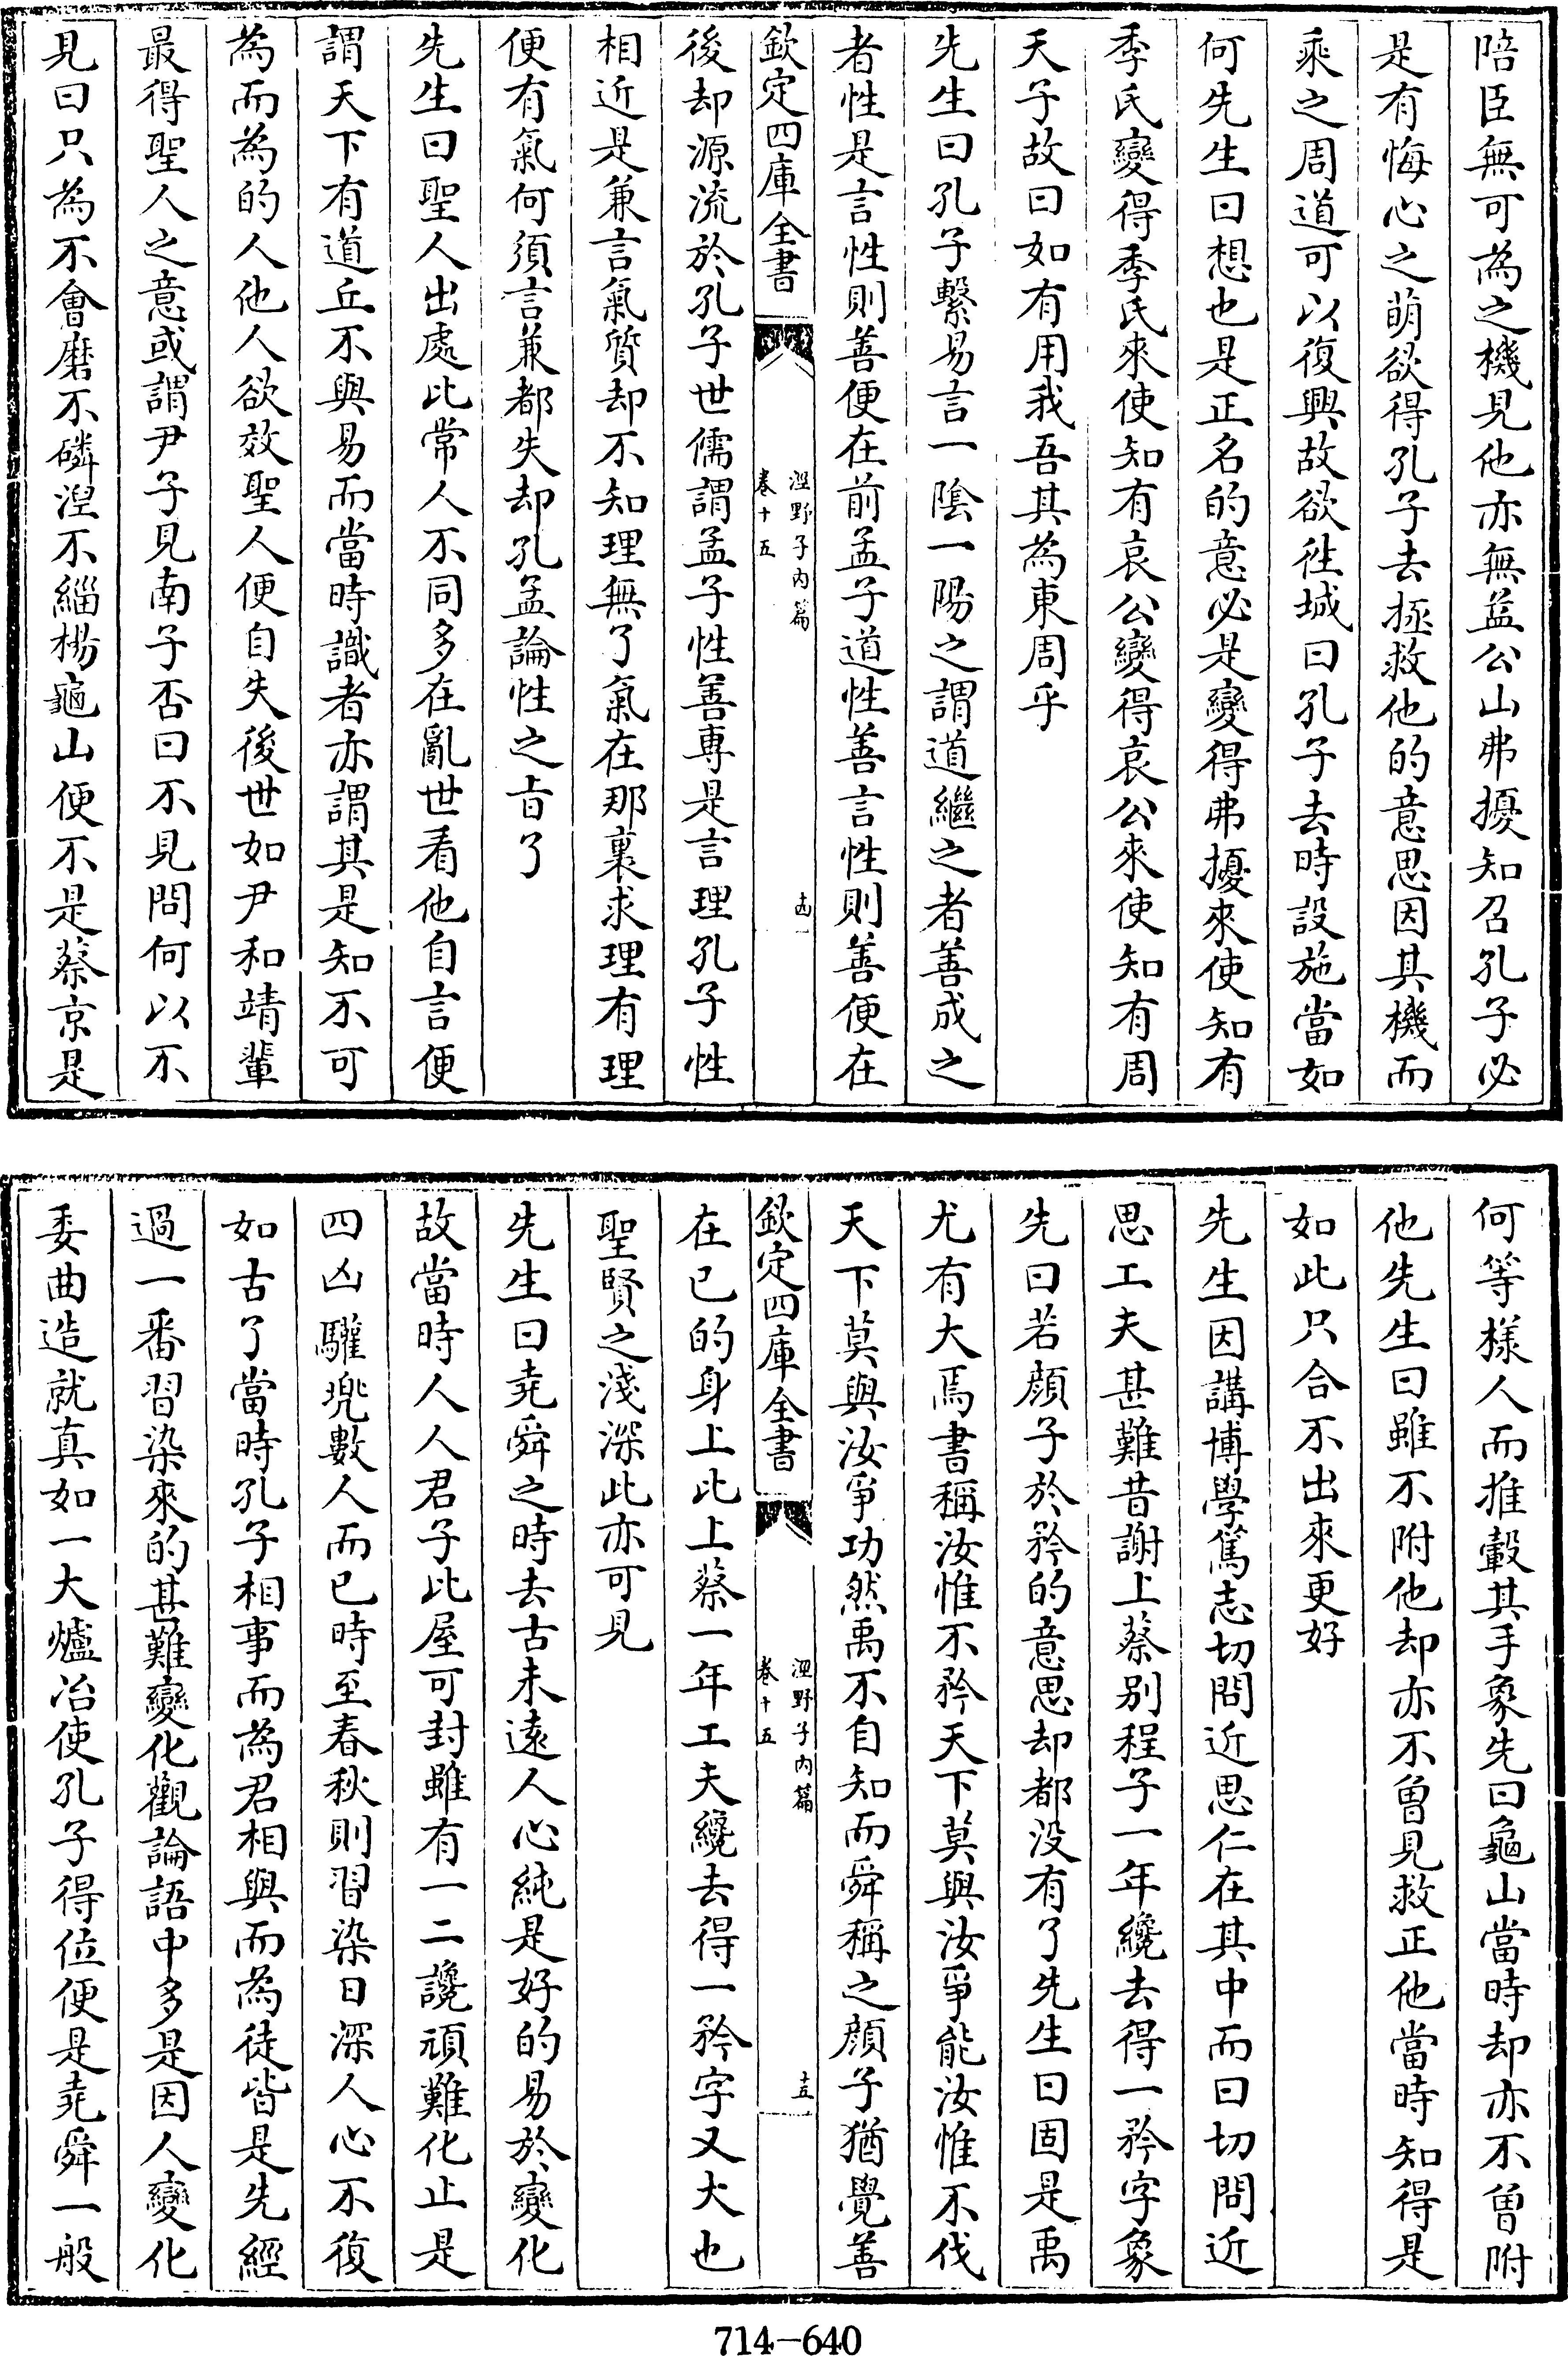 陪臣無可為之機見他亦無益公山弗擾知召孔子必
是有悔心之萌欲得孔子去拯救他的意思因其機而
乘之周道可以復興故欲徃城曰孔子去時設施當如
何先生曰想也是正名的意必是變得弗擾來使知有
季氏變得季氏來使知有哀公變得哀公來使知有周
天子故曰如有用我吾其為東周乎
先生曰孔子繫易言一陰一陽之謂道繼之者善成之
者性是言性則善便在前孟子道性善言性則善便在
欽定四庫全書
涇野子內篇
卷十五
十四
後却源流於孔子世儒謂孟子性善專是言理孔子性
相近是兼言氣質却不知理無了氣在那裏求理有理
便有氣何須言兼都失却孔孟論性之㫖了
先生曰聖人出處比常人不同多在亂世看他自言便
謂天下有道丘不與易而當時識者亦謂其是知不可
為而為的人他人欲效聖人便自失後世如尹和靖輩
最得聖人之意或謂尹子見南子否曰不見問何以不
見曰只為不會磨不磷湼不緇楊龜山便不是蔡京是
何等様人而推轂其手象先曰龜山當時却亦不曾附
他先生曰雖不附他却亦不曾見救正他當時知得是
如此只合不出來更好
先生因講博學篤志切問近思仁在其中而曰切問近
思工夫甚難昔謝上蔡别程子一年纔去得一矜字象
先曰若顔子於矜的意思却都没有了先生曰固是禹
尤有大焉書稱汝惟不矜天下莫與汝爭能汝惟不伐
天下莫與汝爭功然禹不自知而舜稱之顔子猶覺善
欽定四庫全書
涇野子內篇
卷十五
十五
在已的身上比上蔡一年工夫纔去得一矜字又大也
聖賢之淺深此亦可見
先生曰堯舜之時去古未遠人心純是好的易於變化
故當時人人君子比屋可封雖有一二讒頑難化止是
四凶驩兜數人而已時至春秋則習染日深人心不復
如古了當時孔子相事而為君相與而為徒皆是先經
過一番習染來的甚難變化觀論語中多是因人變化
委曲造就真如一大爐冶使孔子得位便是堯舜一般
714-640